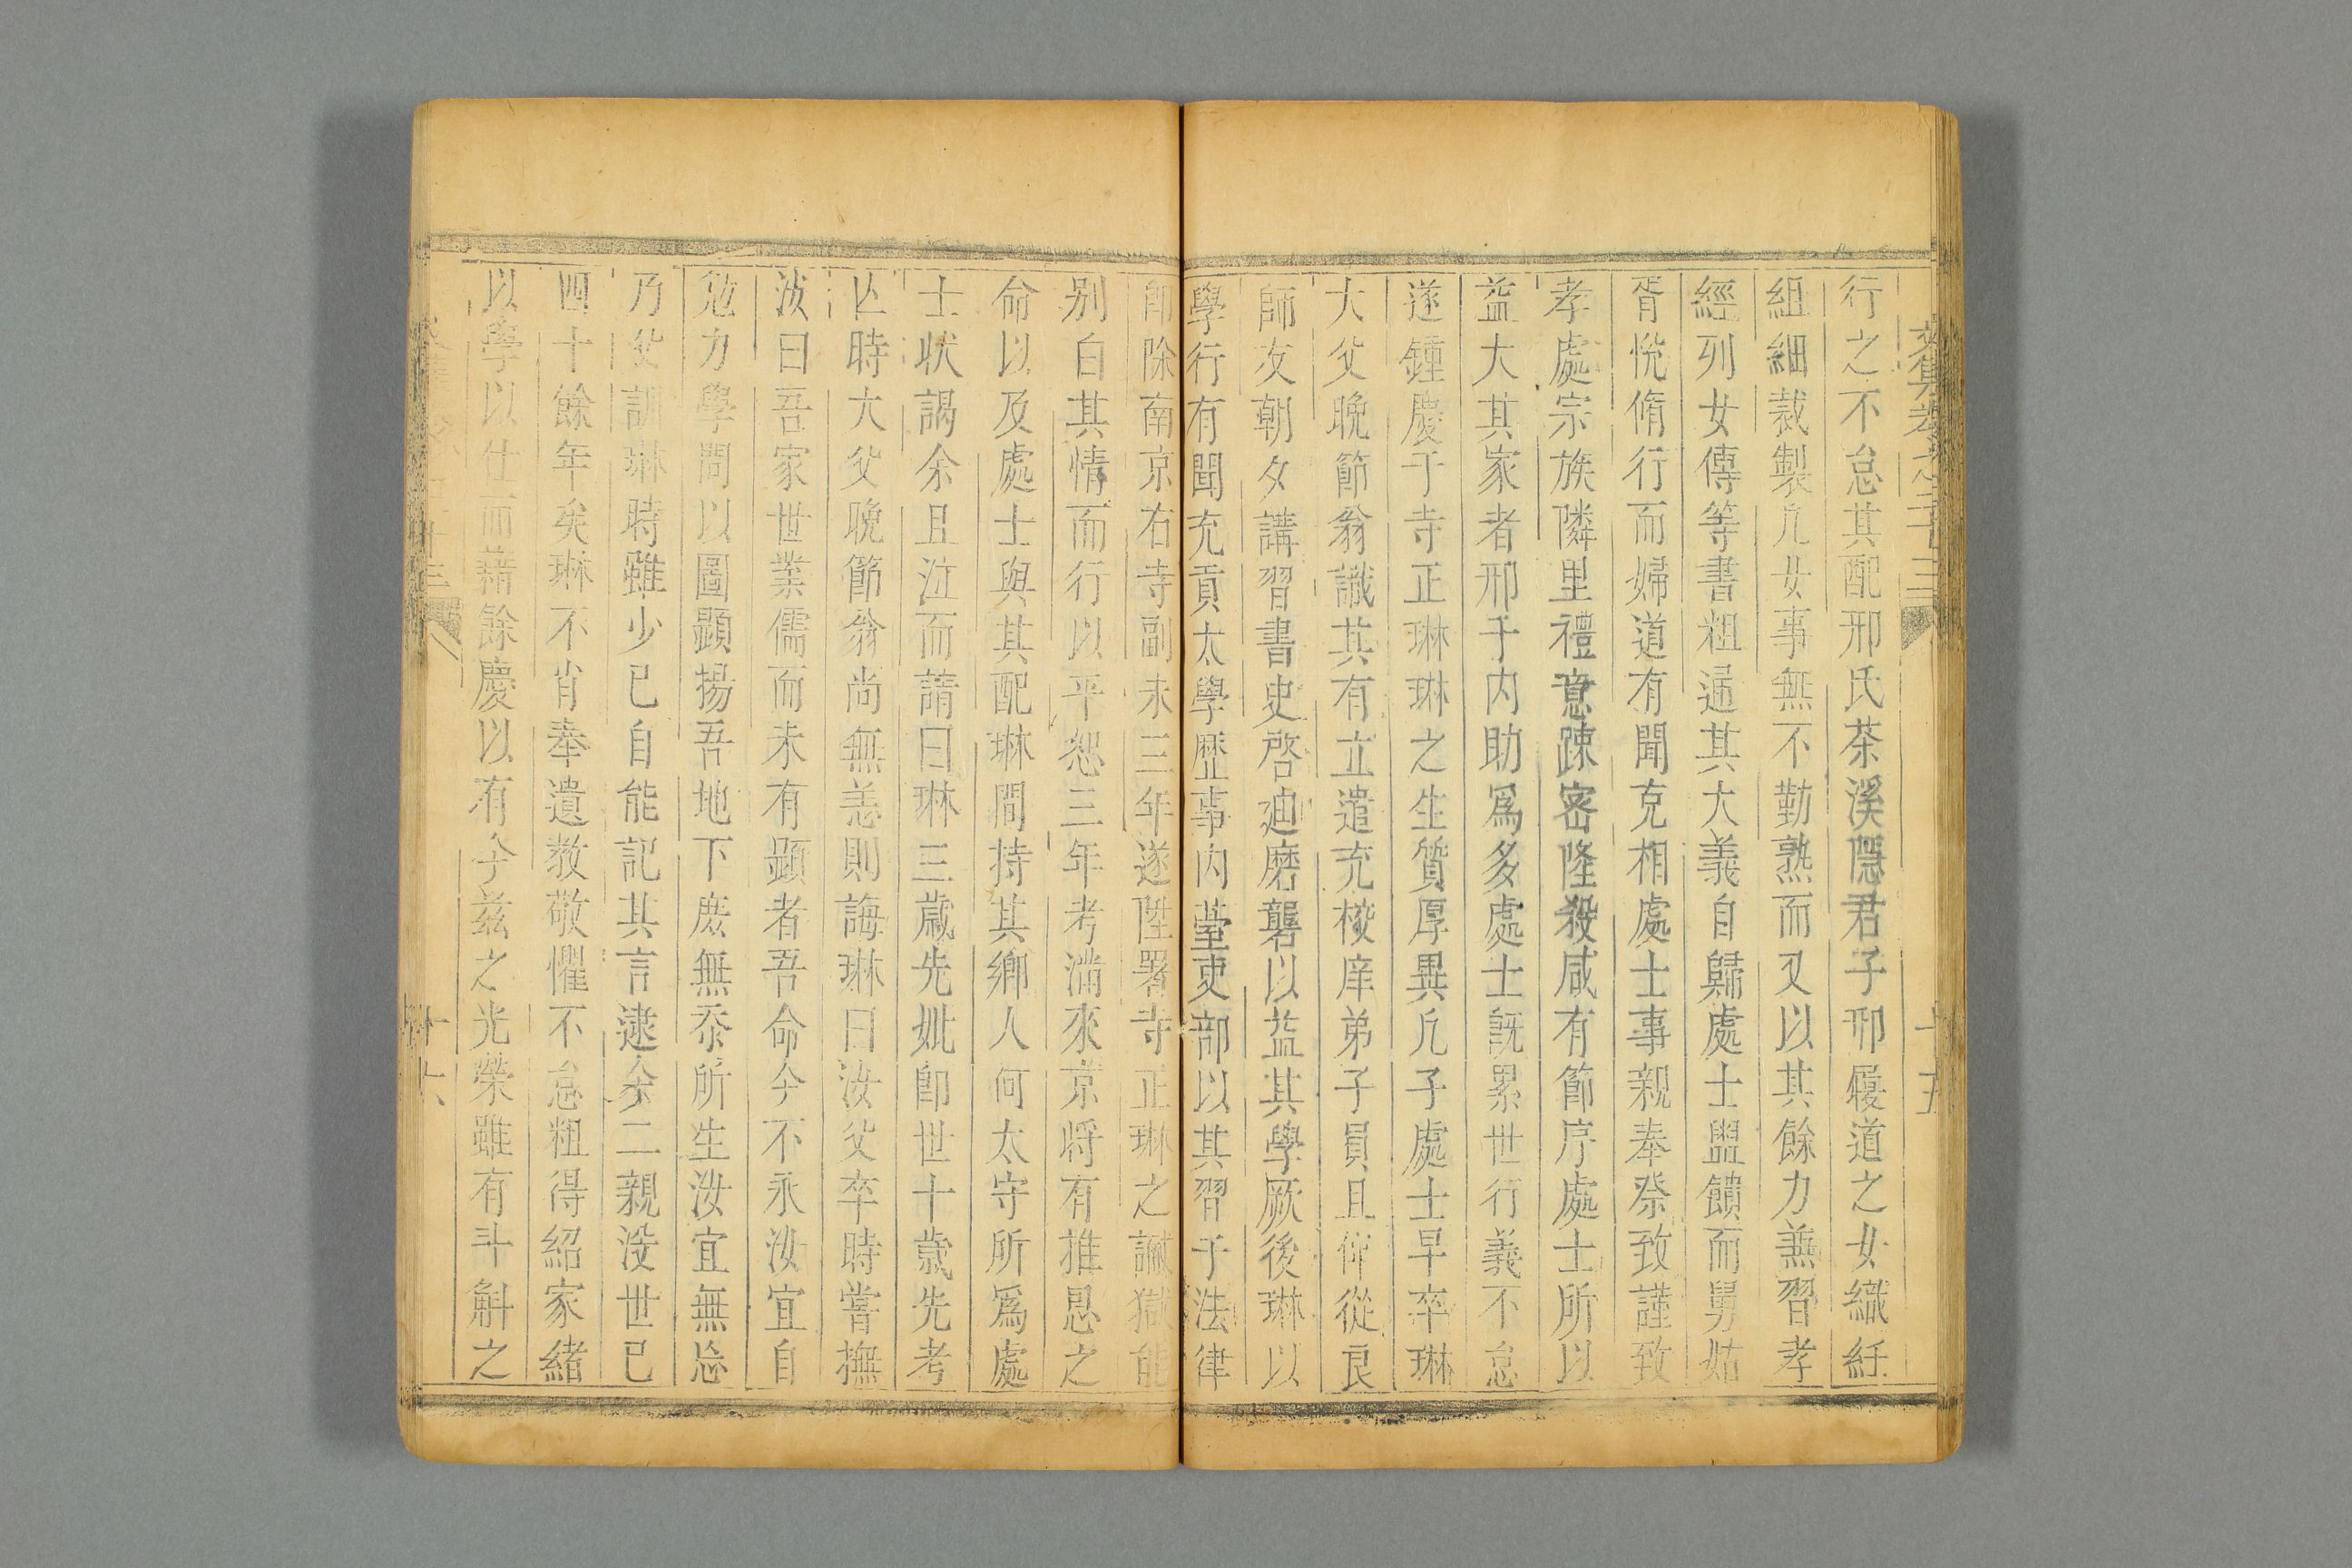 文集卷之二十三
十五
行之不怠其配邢氏茶溪隱君子邢履道之女織紝
組紃裁製凢女事無不勤熟而又以其餘力兼習孝
經列女傳等書粗通其大義自歸處士盥饋而舅姑
胥悅脩行而婦道有聞克相處士事親奉祭致謹致
孝處宗族隣里禮意踈密隆殺咸有節序處士所以
益大其家者邢于内助爲多處士旣累世行義不怠
遂鍾慶于寺正琳琳之生質厚異凢子處士早卒琳
大父晚節翁識其有立遣充校庠弟子員且俾從良
師友朝夕講習書史啓廸磨礱以益其學厥後琳以
學行有聞充貢太學歴事内臺吏部以其習于法律
卽除南京右寺副未三年遂陞署寺正琳之讞獄能
别白其情而行以平恕三年考滿來京将有推恩之
命以及處士與其配琳間持其鄉人何太守所爲處
士狀謁余且泣而請曰琳三歲先妣卽世十歲先考
亾時大父晚節翁尚無恙則誨琳曰汝父卒時嘗撫
汝曰吾家世業儒而未有顯者吾命今不永汝宜自
勉力學問以圖顯揚吾地下庶無忝所生汝宜無忘
乃父訓琳時雖少已自能記其言逮今二親没世已
四十餘年矣琳不肖奉遺教敬懼不怠粗得紹家緒
以學以仕而藉餘慶以有今兹之光榮雖有斗斛之
十六